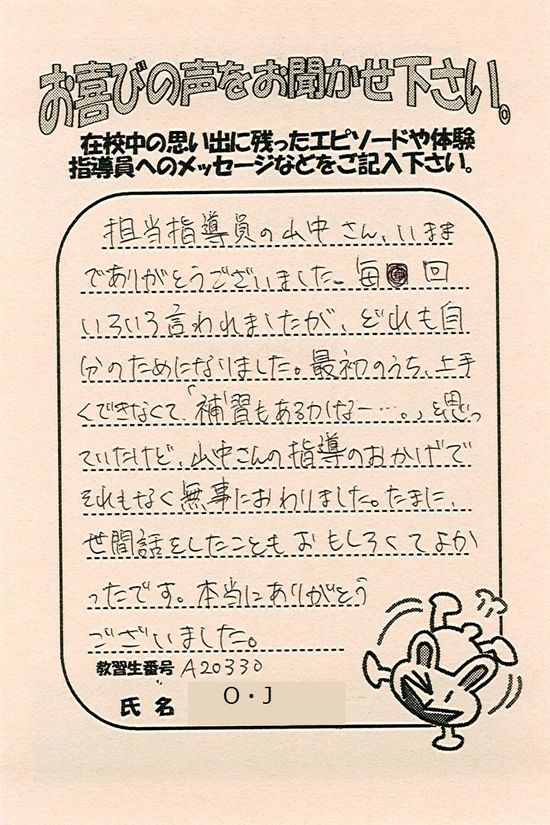 お喜びの声をお聞かせ下さい。
在校中の思い出に残ったエピソードや体験
指導員へのメッセージなどをご記入下さい。
担当指導員の山中さん、いまま
でありがとうございました。毎回
いろいろ言われましたが、どれも自
分のためになりました。最初のうち、上手
くできなくて、「補習もあるかなー…。」と思っ
ていたけど、山中さんの指導のおかげで
それもなく無事におわりました。たまに、
世間話をしたこともおもしろくてよか
ったです。本当にありがとう
ございました。
教習生番号 A20330
氏名 O・J